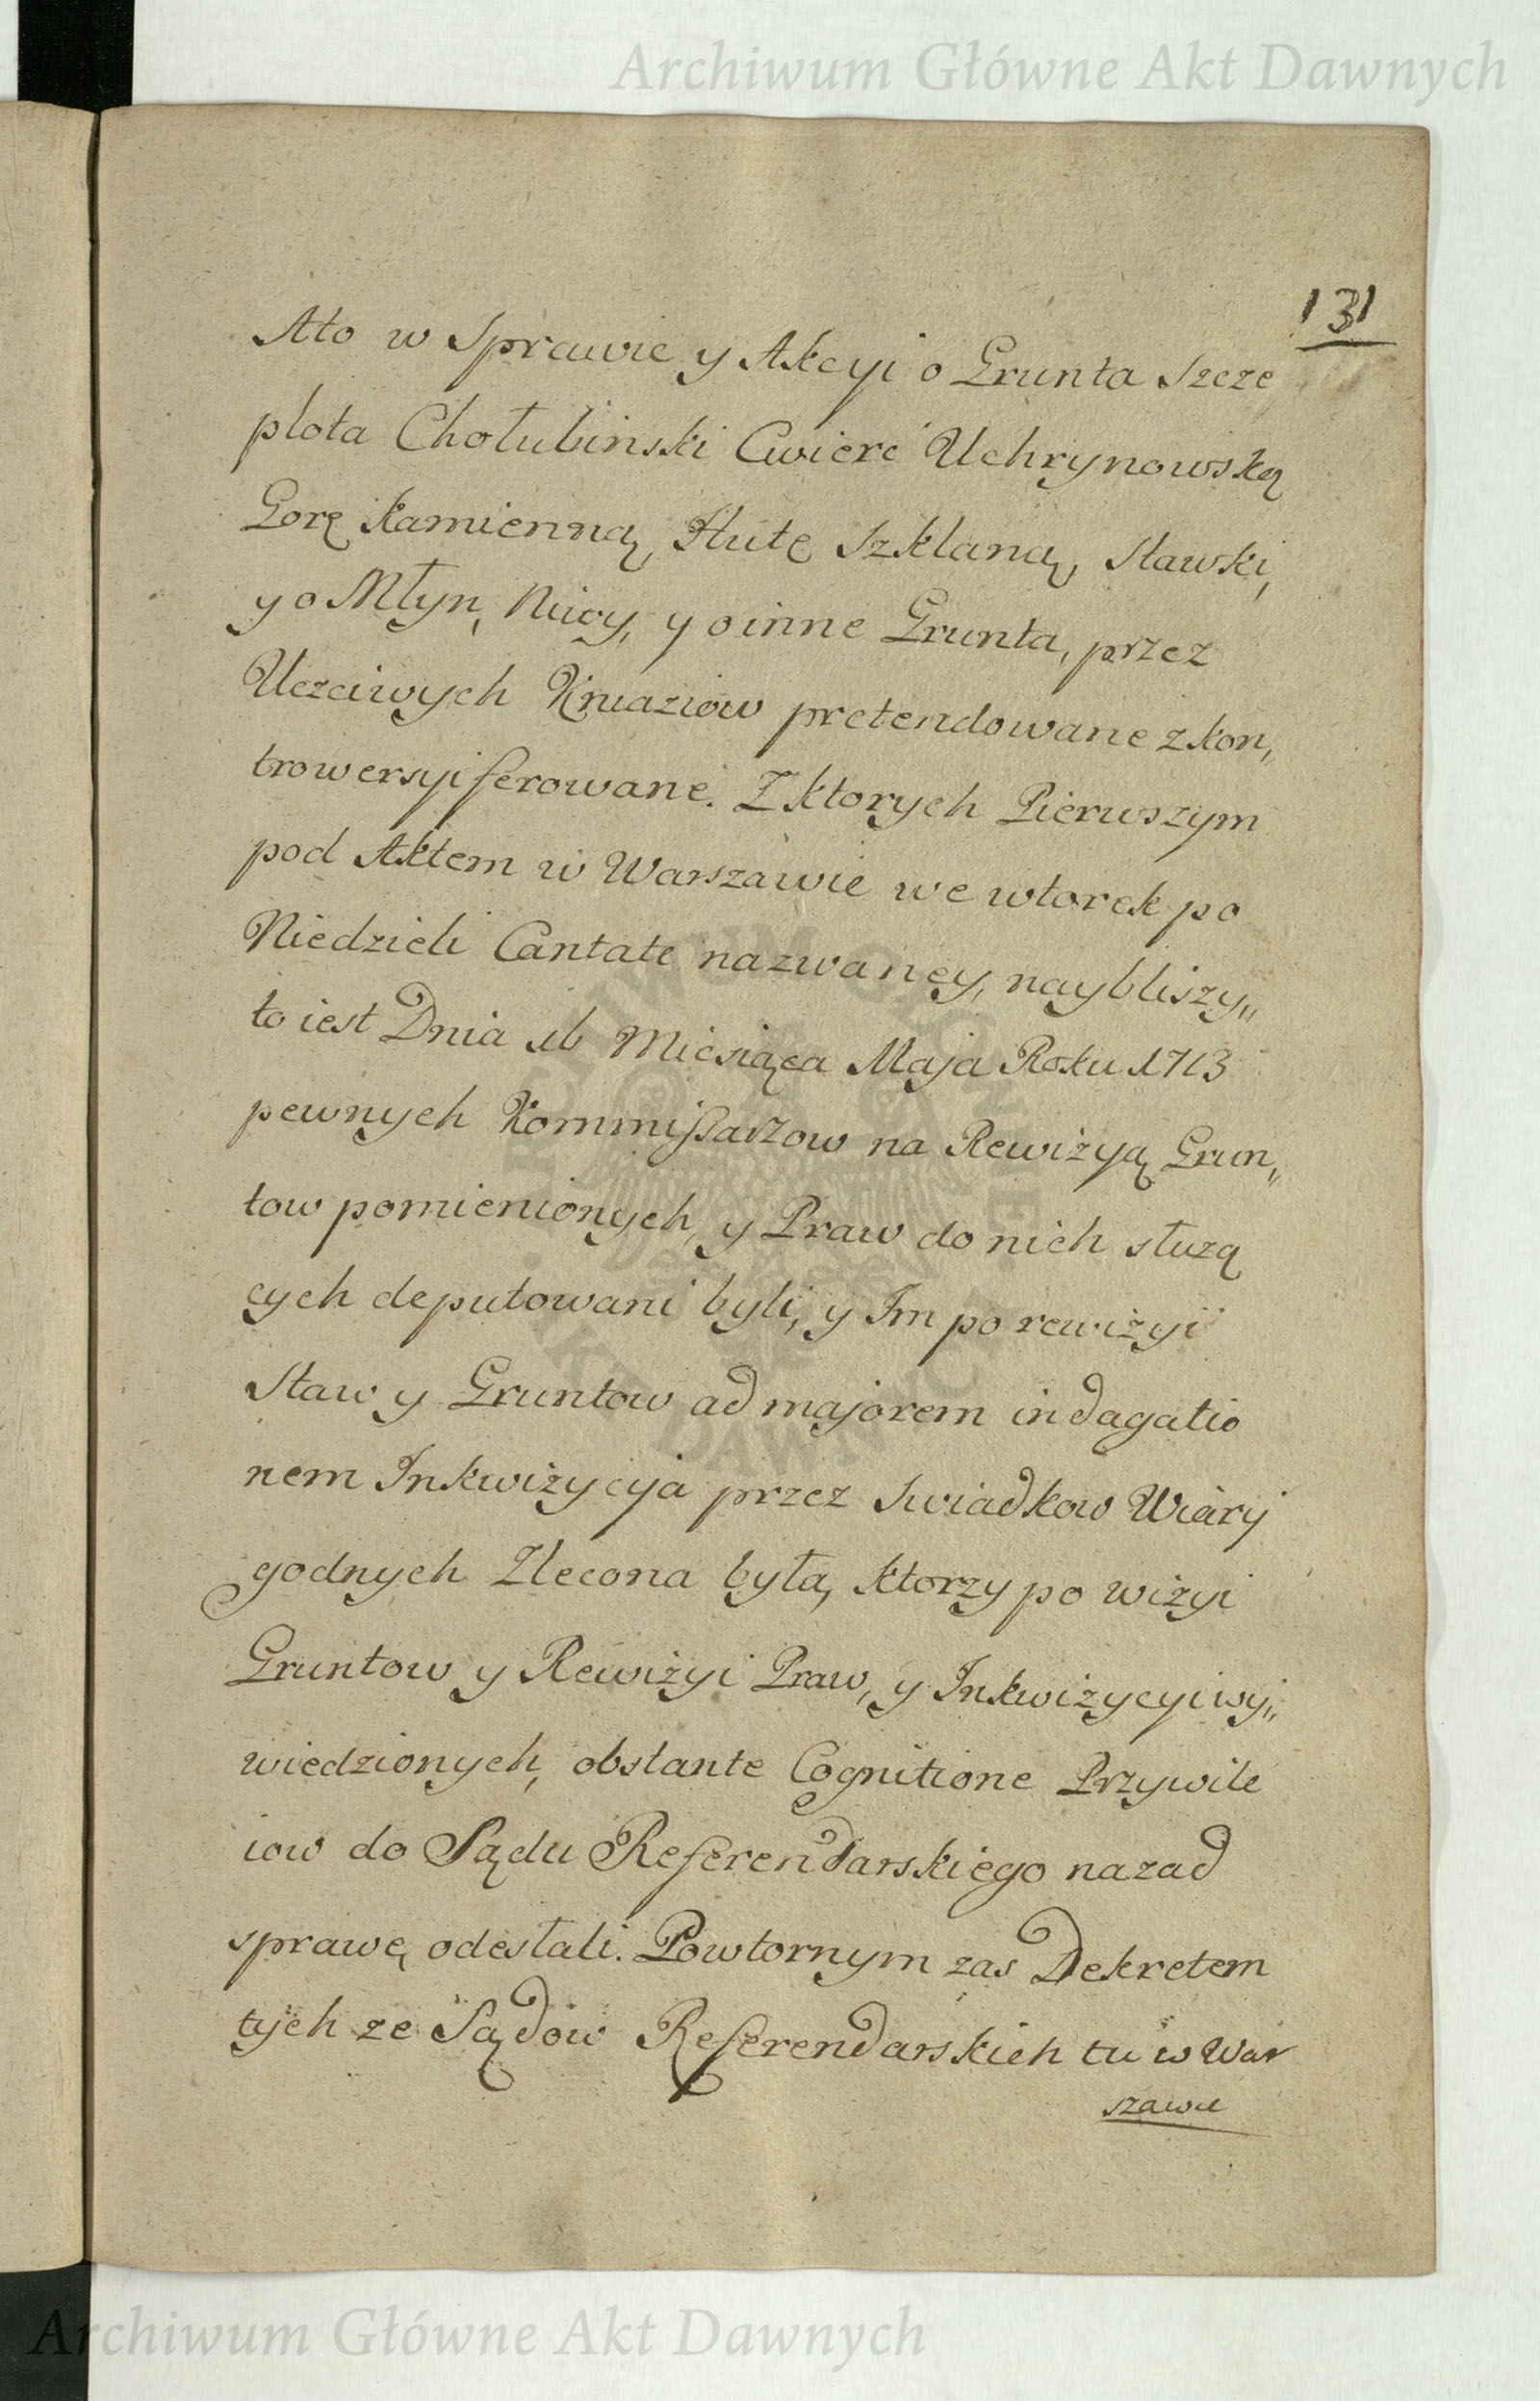 Archiwum Główne Akt Dawnych
131
Ato w Sprawie y Akcyi o Grunta Szcze
plota Chołubinski Cwierć Uchrynowską
Gorę kamienną, Hutę Szklaną, Stawki,
y o Młyn, Niwy, y o inne Grunta, przez
Uczciwych Kniaziow pretendowane z kon,
trowersyi ferowane. Z ktorych Pierwszym
pod Aktem w Warszawie we wtorek po
Niedzieli Cantate nazwaney, naybliszy,,
to iest Dnia 16 Miesiąca Maja Roku 1713
pewnych Kommissarzow na Rewizyą Grun,,
tow pomienionych, y Praw do nich słuzą
cych deputowani byli, y Im po rewizyi
Staw y Gruntow ad majorem indagatio
nem Inkwizycyja przez Swiadkow Wiary
godnych Zlecona była, ktorzy po wizyi
Gruntow y Rewizyi Praw, y Inkwizycyi wy,,
wiedzionych, obstante Cognitione Przywile
iow do Sądu Referendarskiego nazad
sprawę odesłali. Powtornym zas Dekretem
tych ze Sądow Referendarskich tu w War
szawie
Archiwum Główne Akt Dawnych